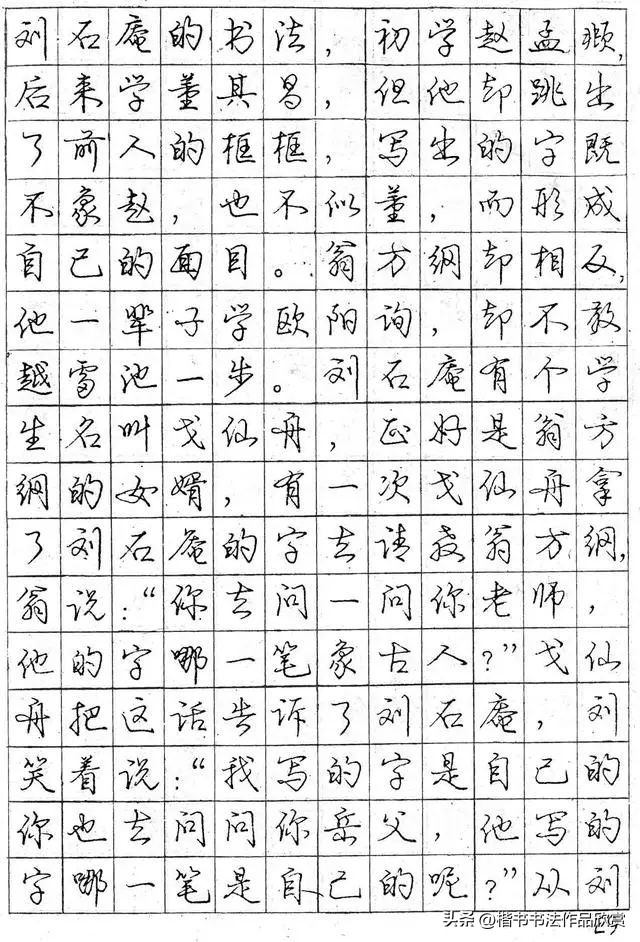 刘石庵的书法，初学赵孟頫，
后来学董其昌，但他却跳出
了前人的框框，写出的字既
不象赵，也不似董，而形成
自己的面目。翁方纲却相反，
他一辈子学欧阳询，却不敢
越雷池一步。刘石庵有个学
生名叫戈仙舟，正好是翁方
纲的女婿，有一次戈仙舟拿
了刘石庵的字去请教翁方纲，
翁说：“你去问一问你老师，
他的字哪一笔象古人？”戈仙
舟把这话告诉了刘石庵，刘
笑着说：“我写的字是自己的
你也去问问你岳父，他写的
字哪一笔是自己的呢？”从刘
头条@楷书书法作品欣赏